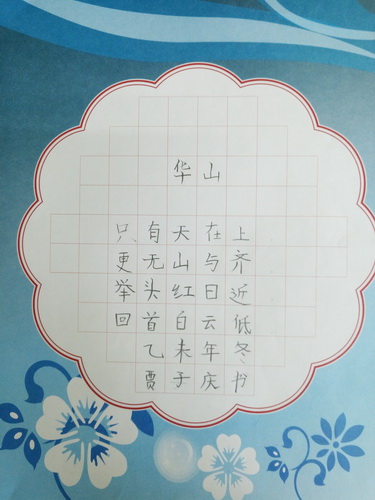 华山
只有天在上
更无山与齐
举头红日近
回首白云低
乙未年冬
贾子庆书